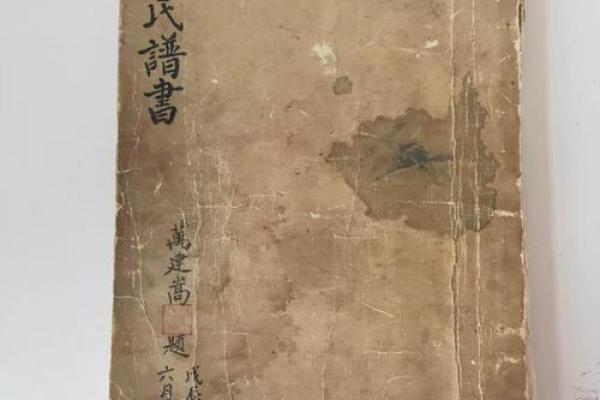 氏譜書
萬建嵩
題
六月